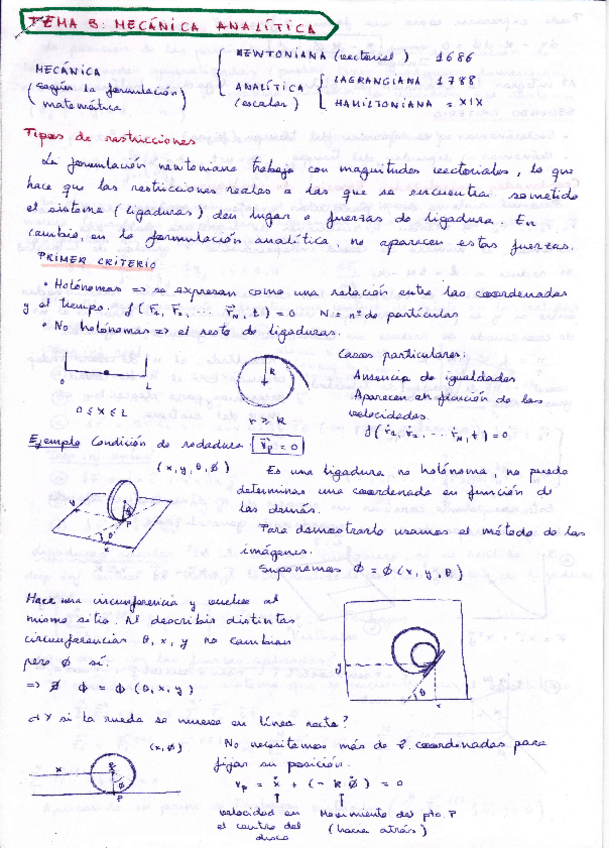 TEMA 8: MECÁNICA ANALÍTICA
MECÁNICA
(según la formulación
matemática)
NEWTONIANA (vectorial) 1686
ANALÍTICA
(escalar)
LAGRANGIANA 1788
HAMILTONIANA = XIX
Tipos de restricciones
La formulación newtoniana trabaja con magnitudes vectoriales, lo que
hace que las restricciones reales a las que se encuentra sometido
el sistema (ligaduras) den lugar a fuerzas de ligadura. En
cambio, en la formulación analítica, no aparecen estas fuerzas.
PRIMER CRITERIO
• Holónomas => se expresan como una relación entre las coordenadas
y el tiempo. f(r⃗1, r⃗2, ... r⃗N, t) = 0 N = nº de partículas
• No holónomas => el resto de ligaduras.
0 L
0 ≤ x ≤ L
R
r ≥ R
Casos particulares:
Ausencia de igualdades
Aparecen en función de las
velocidades.
f(r⃗1, r⃗2, ... r⃗N, t) = 0
Ejemplo Condición de rodadura v⃗p = 0
(x, y, θ, ϕ)
Es una ligadura no holónoma, no puedo
determinar una coordenada en función de
las demás.
Para demostrarlo usamos el método de las
imágenes.
Suponemos ϕ = ϕ(x, y, θ)
P
θ
Hace una circunferencia y vuelve al
mismo sitio. Al describir distintas
circunferencias θ, x, y no cambian
pero ϕ sí.
=> ∄ ϕ = ϕ(θ, x, y)
y
θ
x
¿Y si la rueda se mueve en línea recta?
(x, ϕ)
No necesitamos más de 2 coordenadas para
fijar su posición.
vp = ẋ + (-Rϕ̇) = 0
x
P
velocidad en
el centro del
disco
Movimiento del pto. P
(hacia atrás)